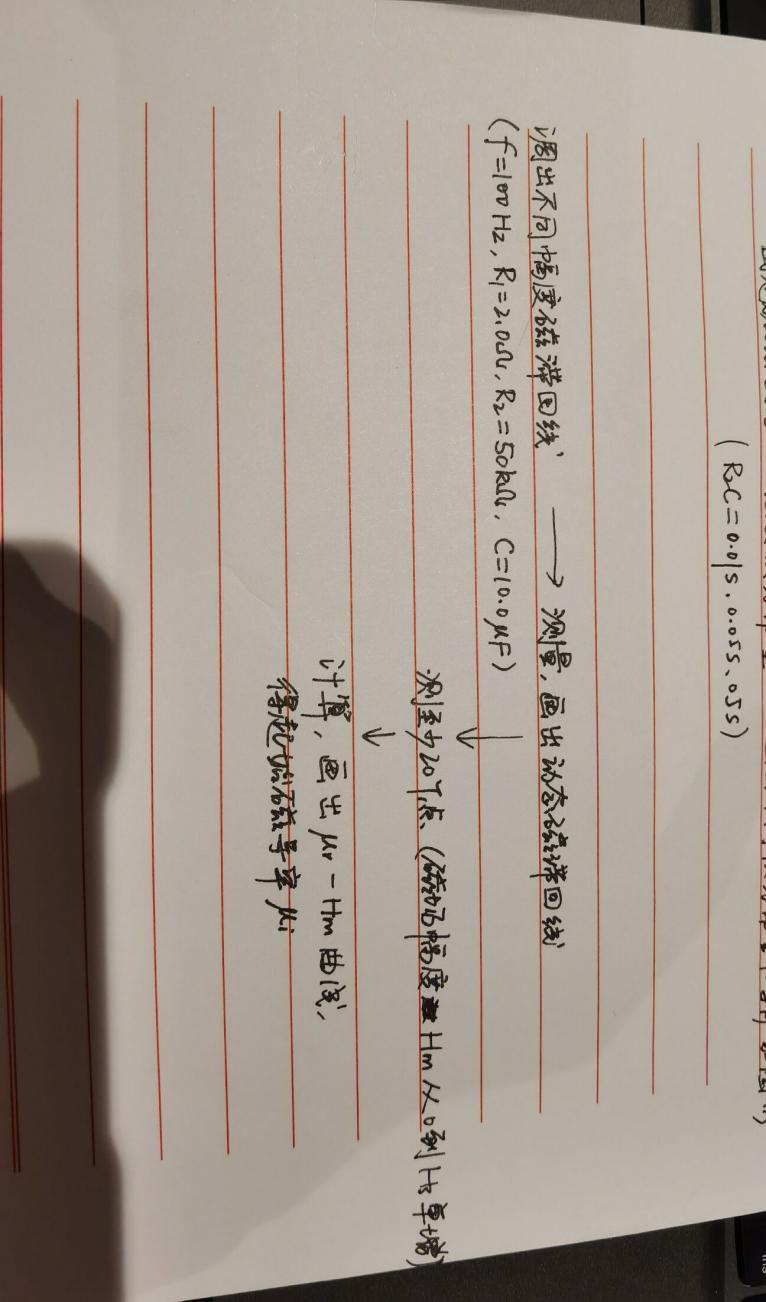 (R₂C=0.01s、0.05s、0.5s)
调出不同幅度磁滞回线 → 测量,画出动态磁滞回线
(f=100Hz, R₁=2.0Ω, R₂=50kΩ, C=10.0μF)
↓
测至少20个点、(磁场幅度 Hm 从0到Hs单增)
↓
计算,画出μr-Hm曲线,
得起始磁导率μi